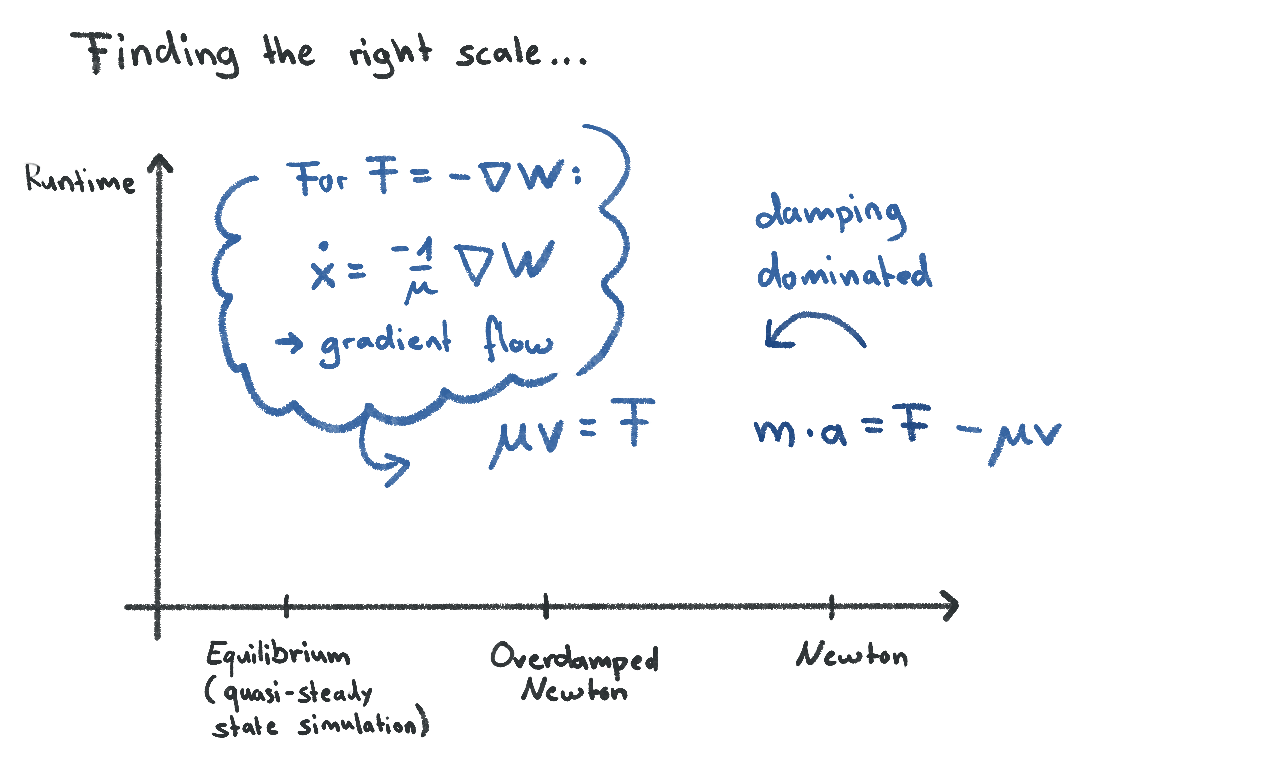 Finding the right scale...
Runtime
For F = -∇W:
ẋ = -1/μ ∇W
→ gradient flow
damping
dominated
μv = F
m·a = F - μv
Equilibrium
(quasi-steady
state simulation)
Overdamped
Newton
Newton